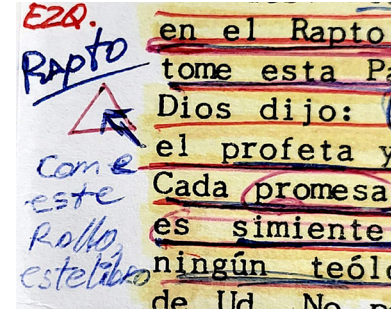 EZQ.
Rapto
Come
este
Rollo,
este libro
en el Rapto
tome esta Pa
Dios dijo:
el profeta y
Cada promesa
es simiente
ningún teólo
de Ud. No p